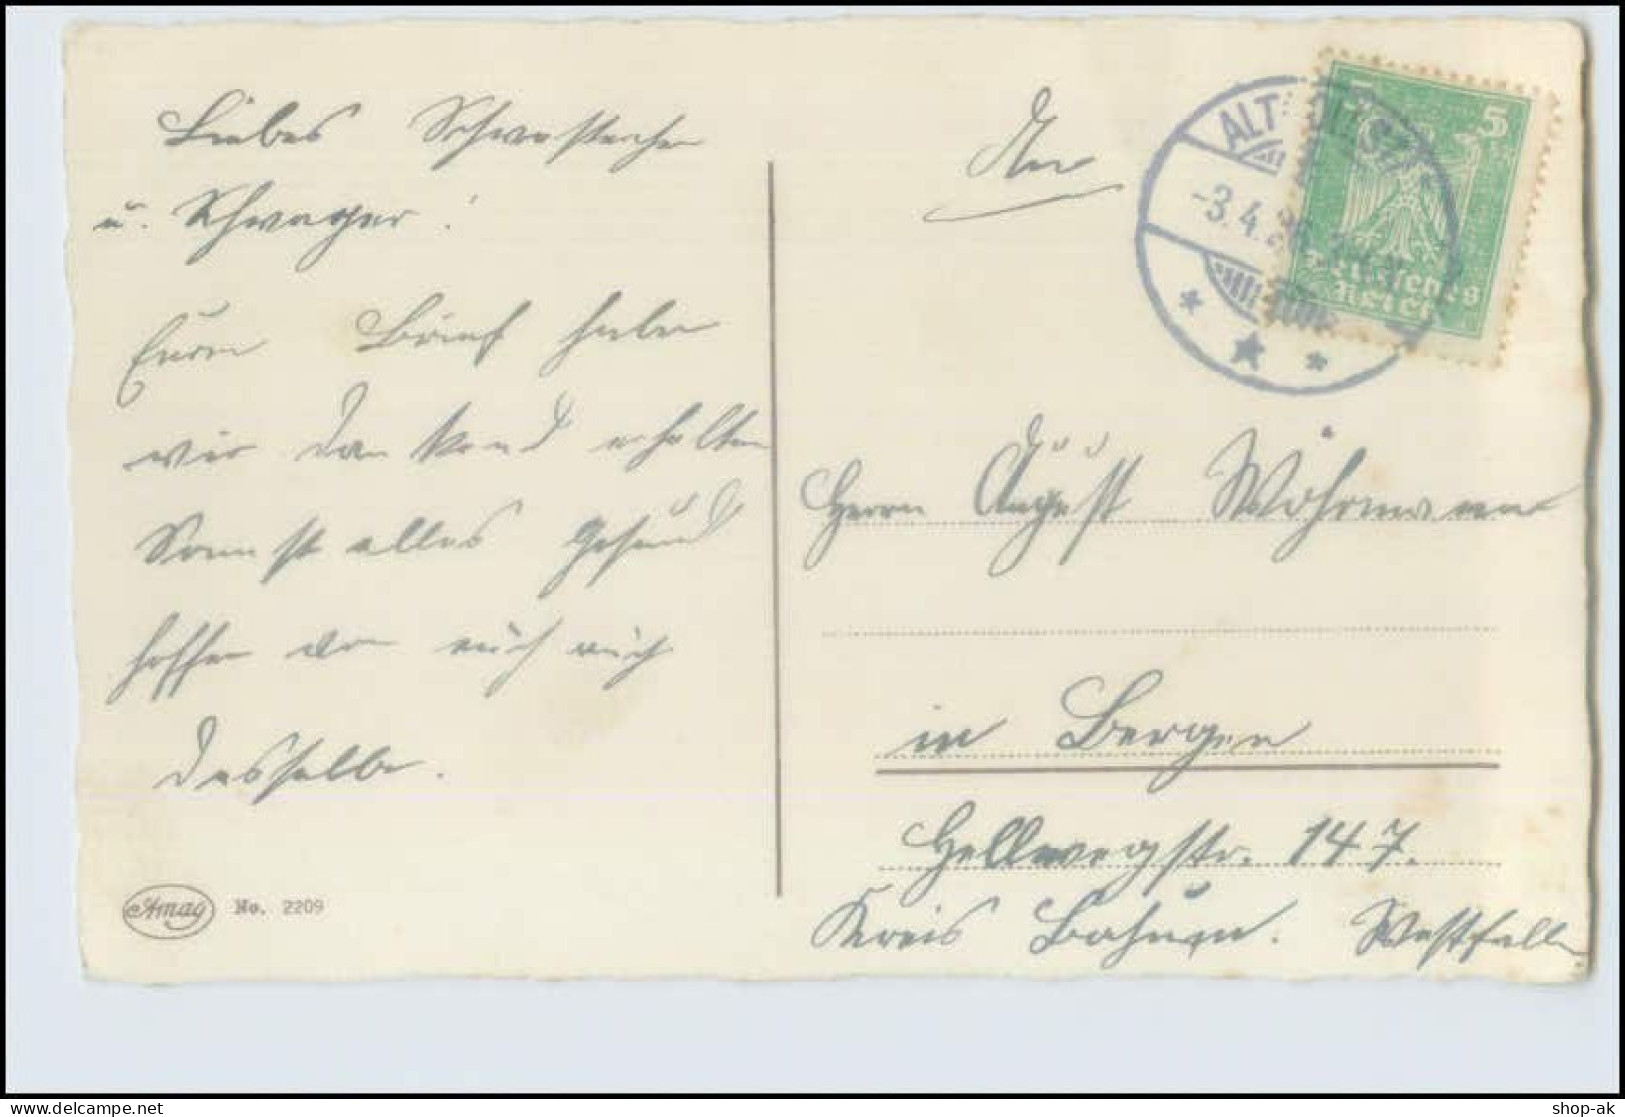 Liebes Schwesterchen
u. Schwager!
Euren Brief haben
wir dankend erhalten
Sonnst alles gesund
hoffen von euch auch
dasselbe.
Amag No. 2209
An
ALT
-3.4.26.
5 5
Deutsches
Reich
Herrn August Wöhrmann
in Bergen
Hellwegstr. 147.
Kreis Bochum. Westfallen
shop-ak